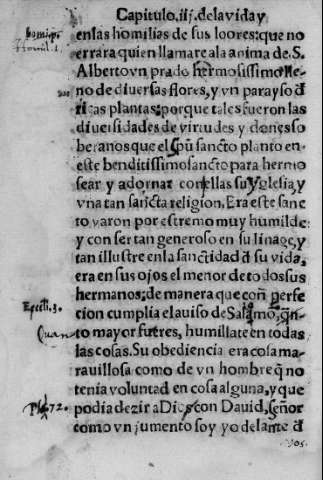 Capitulo, iij. de la vida y
en las homilias de sus loores: que no
errara quien llamare ala anima de .S.
Alberto vn prado hermosissimo lle-
no de diuersas flores, y vn parayso đ
ricas plantas: porque tales fueron las
diuersidades de virtudes y dones so
beranos que el spũ sancto planto en
este benditissimo sancto para hermo
sear y adornar con ellas su yglesia, y
vna tan sancta religion. Era este sanc
to varon por estremo muy humilde:
y con ser tan generoso en su linage, y
tan illustre en la sanctidad đ su vida,
era en sus ojos el menor de todos sus
hermanos: de manera que con perfe
cion cumplia el auiso de Salamõ, q̃n-
to mayor fueres, humillate en todas
las cosas. Su obediencia era cosa ma-
rauillosa como de vn hombre q̃ no
tenia voluntad en cosa alguna, y que
podia dezir a Dios con Dauid, señor
como vn jumento soy yo delante đ
homil. 1.
Eccli. 3.
Quan
Ps. 72.